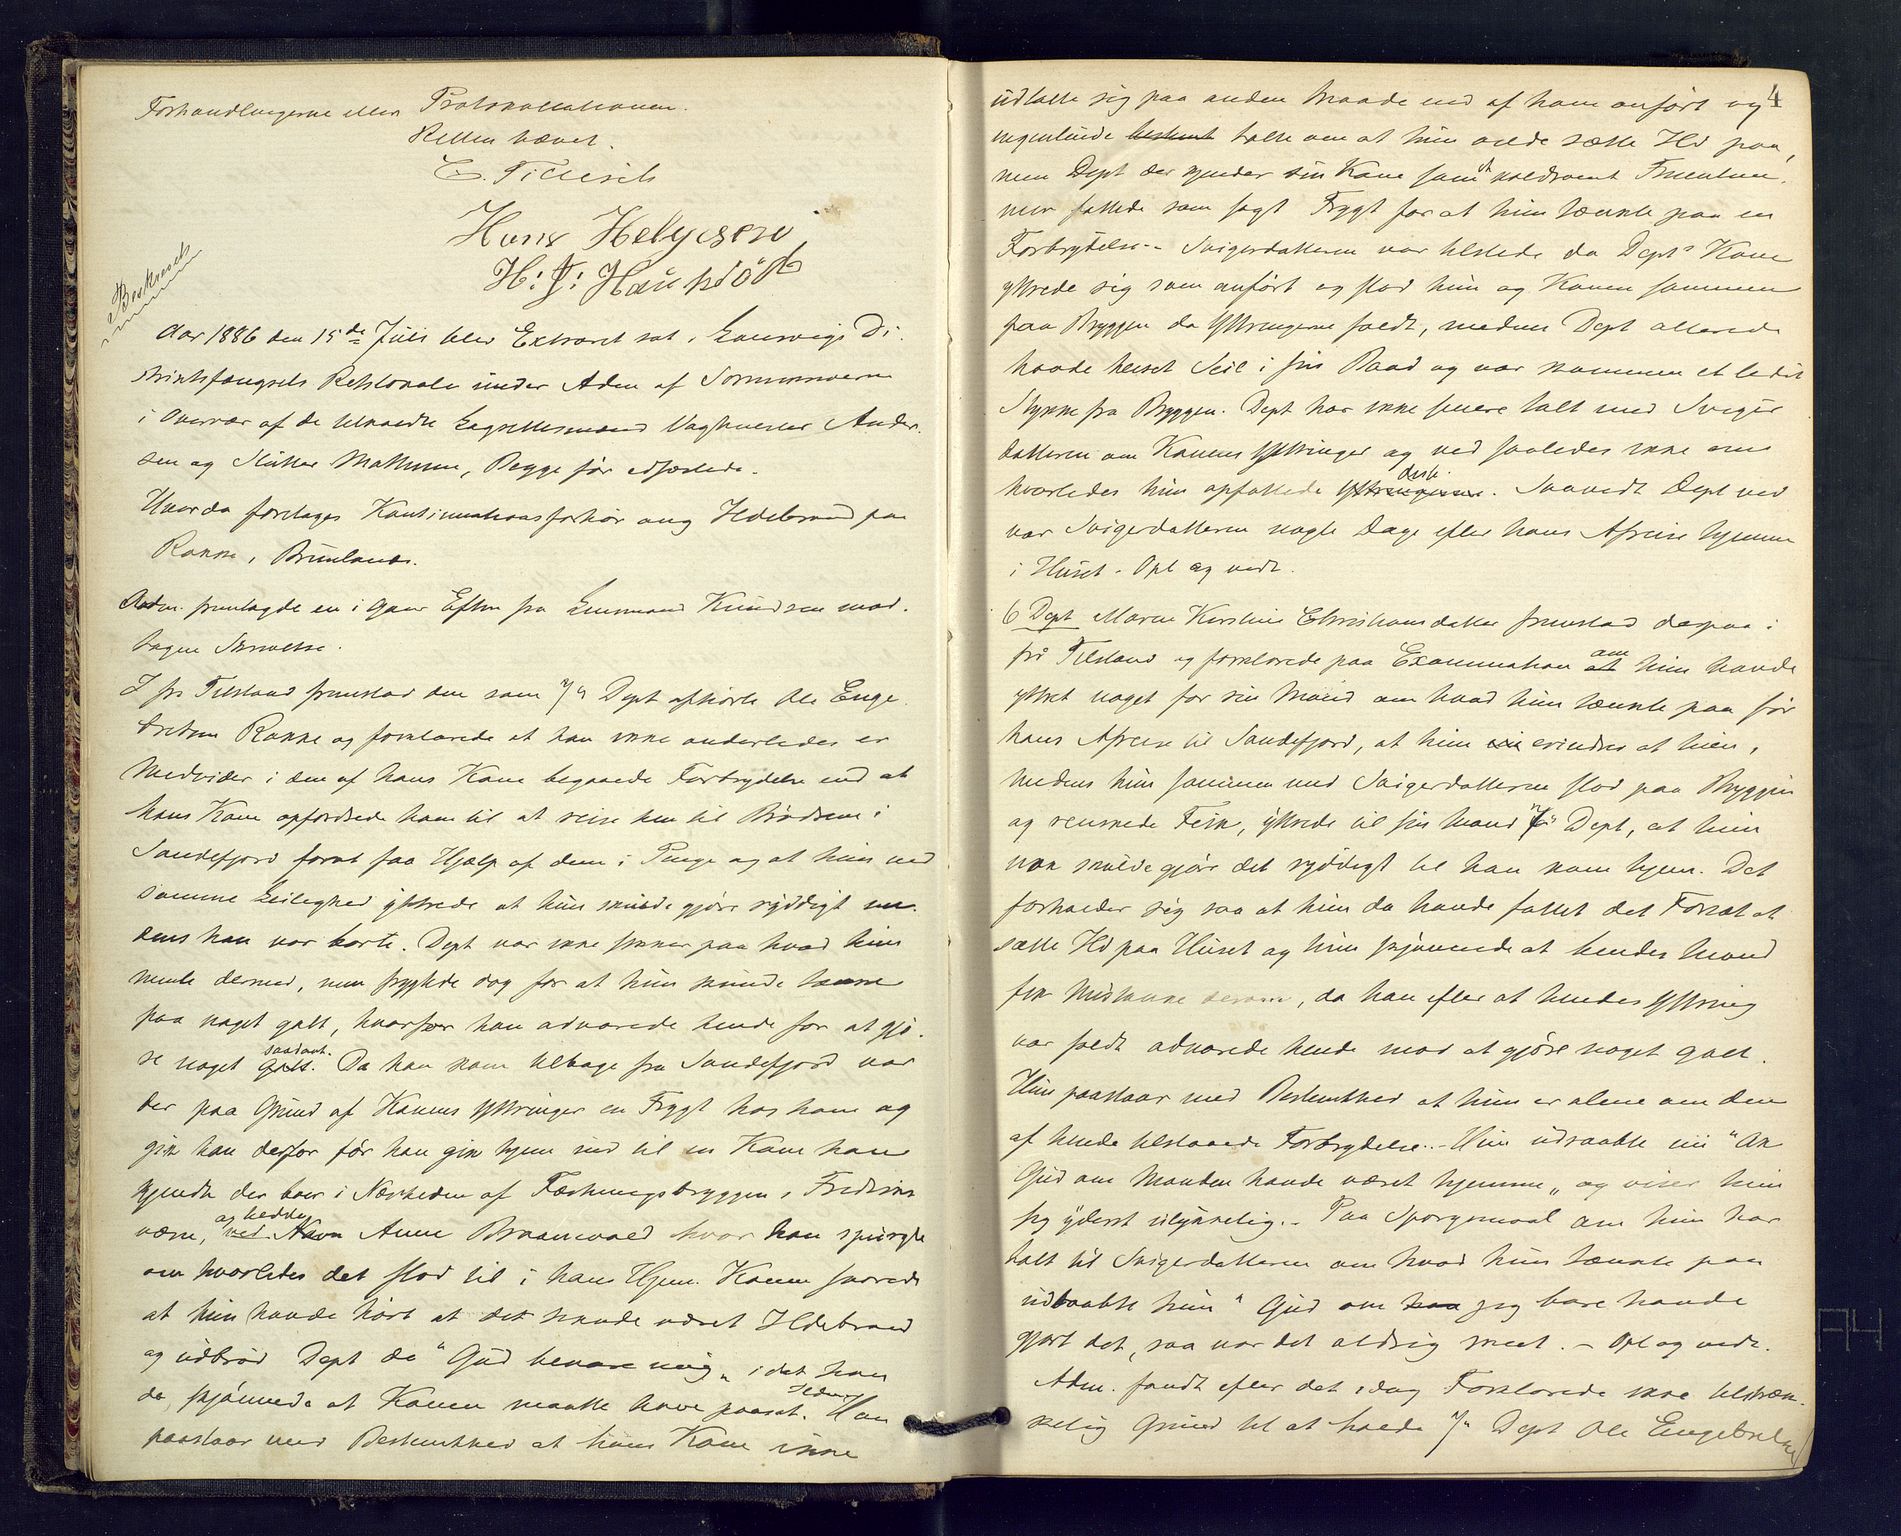 Forhandlingerne eller Protokollationen.
Retten hævet.
Hans Helgesen
Beskrevet
Aar 1886 den 15de Juli blev Extraret sat i Laurvigs Di-
striktsfængsels Retslokale under Adm af Sorenskriveren
i Overvær af de tilkaldte Lagrettesmænd Vagtmester Ander-
sen og Slutter Mathisen, Begge før edfæstede.
Hvorda foretoges Kontinuationsforhør ang Ildebrand paa
Rakke i Brunlanæs.
Adm. fremlagde en i Gaar Efterm fra Lensmand Knudsen mod-
tagen Skrivelse.
I fri Tilstand fremstod den som 7de Dept afhørte Ole Enge-
bretsen Rakke og forklarede at han ikke anderledes er
Medvider i den af hans Kone begaaede Forbrydelse end at
hans Kone opfordrede ham til at reise hen til Brødrene i
Sandefjord forat faa Hjælp af dem i Penge og at hun ved
samme Leilighed yttrede at hun skulde gjøre ryddigt me-
dens han var borte. Dept var ikke sikker paa hvad hun
mente dermed, men frygtede dog for at hun kunde tænke
paa noget galt, hvorfor han advarede hende for at gjø-
re noget galt. saadant. Da han kom tilbage fra Sandefjord var
der paa Grund af Konens Yttringer en Frygt hos ham og
gik han derfor før han gik hjem ind til en Kone han
kjendte der boer i Nærheden af Fæstningsbryggen i Fredriks-
værn, og hedder ved Navn Anne Braanvold hvor han spurgte
om hvorledes det stod til i hans Hjem. Konen svarede
at hun havde hørt at det havde været Ildebrand
og udbrød Dept da "Gud bevare mig" idet han
da skjønnede at Konen maatte have paasat Ilden. Han
paastaar med Bestemthed at hans Kone ikke
4
udtalte sig paa anden Maade end af ham anført og
ingenlunde bestemt talte om at hun vilde sætte Ild paa,
men Dept der kjender sin Kone som et voldsomt Fruentim-
mer fattede som sagt Frygt for at hun tænkte paa en
Forbrydelse. - Svigerdatteren var tilstede da Depts Kone
yttrede sig som anført og stod hun og Konen sammen
paa Bryggen da Yttringerne faldt, medens Dept allerede
havde heiset Seil i sin Baad og var kommen et lidet
Stykke fra Bryggen. Dept har ikke senere talt med Sviger-
datteren om Konens Yttringer og ved saaledes ikke om
hvorledes hun opfattede Yttringerne disse. Saavidt Dept ved
var Svigerdatteren nogle Dage efter hans Afreise hjemme
i Huset. - Opl og vedt.
6 Dept Maren Kirstine Christiansdatter fremstod derpaa i
fri Tilstand og forklarede paa Examination at om hun havde
yttret noget for sin Mand om hvad hun tænkte paa før
hans Afreise til Sandefjord, at hun erindrer at hun,
medens hun sammen med Svigerdatteren stod paa Bryggen
og renskede Fisk, yttrede til sin Mand 7de Dept, at hun
nok skulde gjøre det ryddigt til han kom hjem. Det
forholder sig saa at hun da havde fattet det Forsæt at
sætte Ild paa Huset og hun skjønnede at hendes Mand
fik Mistanke derom, da han efter at hendes Yttring
var faldt advarede hende mod at gjøre noget galt.
Hun paastaar med Bestemthed at hun er alene om den
af hende tilstaaede Forbrydelse. - Hun udraabte nu "Ak
Gud om Manden havde været hjemme" og viser hun
sig yderst ulykkelig. - Paa Spørgsmaal om hun har
talt til Svigerdatteren om hvad hun tænkte paa
udraabte hun "Gud om jeg bare havde
gjort det, saa var det aldrig skeet. - Opl og vedt.
Adm. fandt efter det idag Forklarede ikke tilstræk-
kelig Grund til at holde 7de Dept Ole Engebretsen